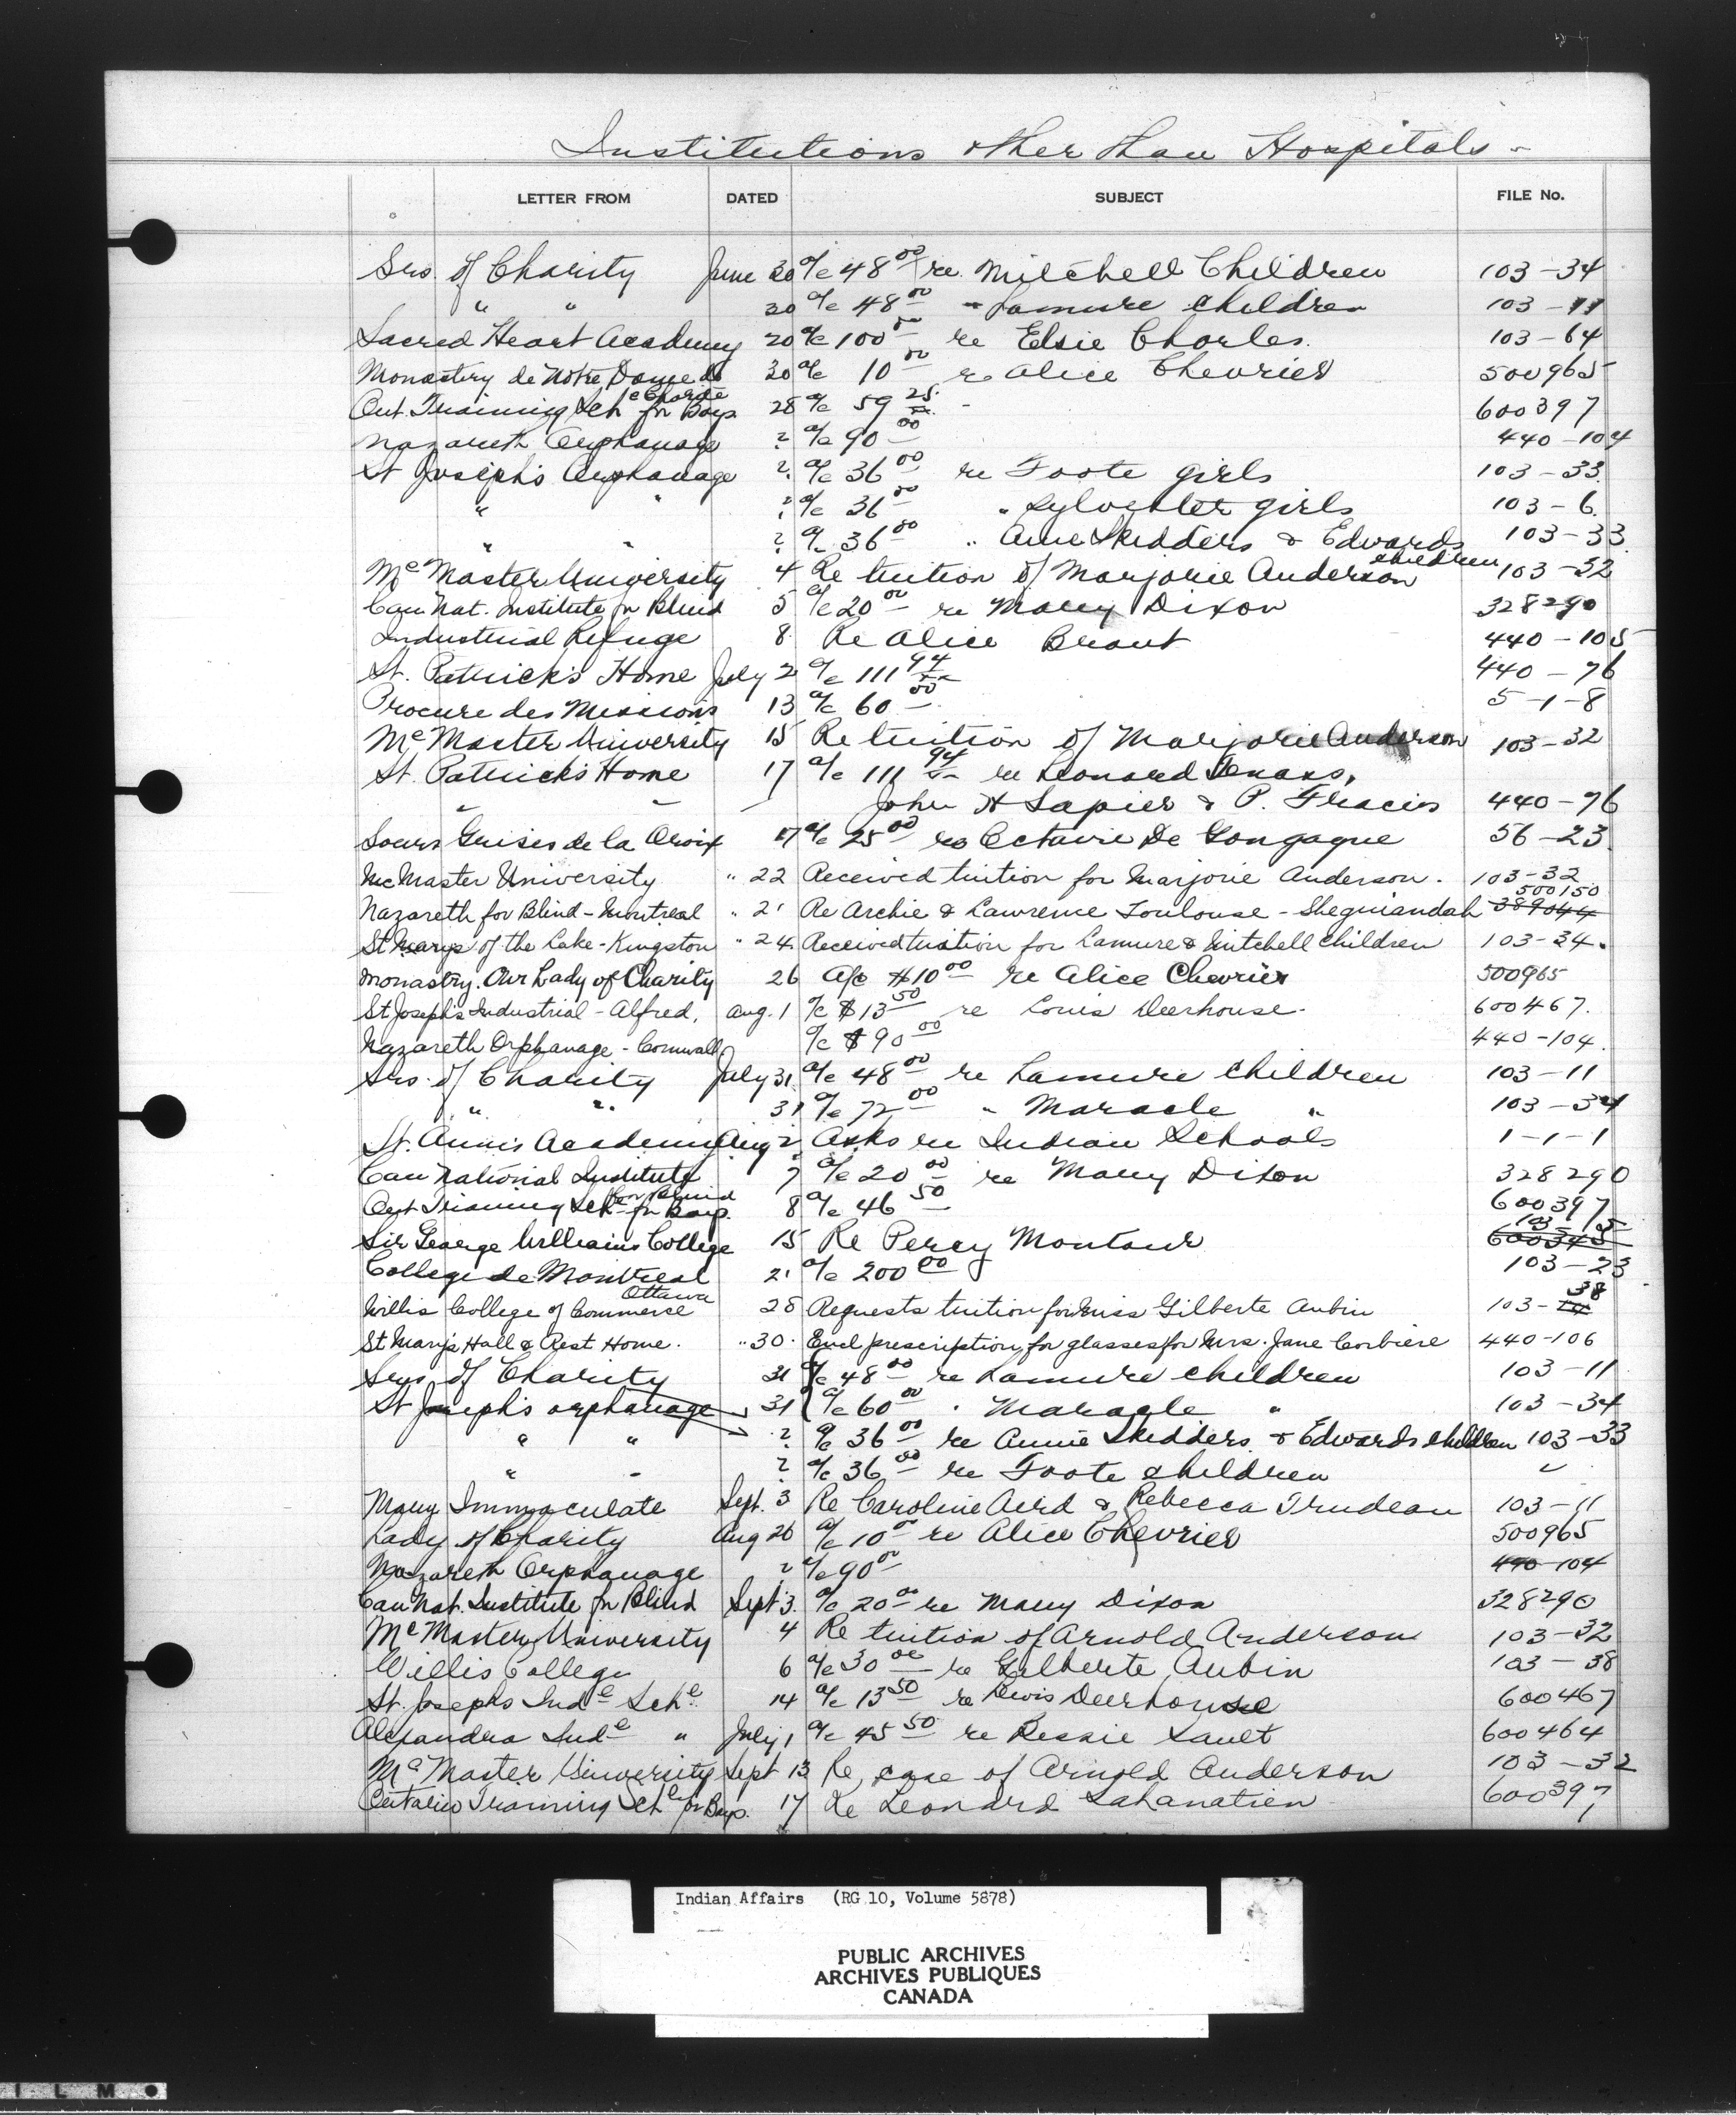 Institutions other than Hospitals -
LETTER FROM DATED SUBJECT FILE No.
Srs. of Charity June 30 a/c 48 00 re Mitchell Children 103-34
" " 30 a/c 48 00 " Lamure children 103-11
Sacred Heart Academy 20 a/c 100 00 re Elsie Charles. 103-64
Monastery de Notre Dame de Charité 30 a/c 10 00 re Alice Chevrier 500965
Ont. Training Sch for Boys 28 a/c 59 25 - 600397
Nazareth Orphanage ? a/c 90 00 440-104
St Joseph's Orphanage ? a/c 36 00 re Foote girls 103-33
" " ? a/c 36 00 " Sylvester girls 103-6
" " ? a/c 36 00 " Anne Skidders & Edwards children 103-33
McMaster University 4 Re tuition of Marjorie Anderson 103-32
Can Nat. Institute for Blind 5 a/c 20 00 re Mary Dixon 328290
Industrial Refuge 8 Re Alice Brant 440-105
St. Patrick's Home July 2 a/c 111 94 440-76
Procure des Missions 13 a/c 60 00 5-1-8
McMaster University 15 Re tuition of Marjorie Anderson 103-32
St. Patrick's Home 17 a/c 111 94 re Leonard
" " " John H Lapier & P. Fracis 440-76
Soeurs Grises de la Croix 17 a/c 25 00 re Octavie De Gongague 56-23
McMaster University " 22 Received tuition for Marjorie Anderson. 103-32
Nazareth for Blind - Montreal " 21 Re Archie & Lawrence Toulouse - Sheguiandah 389044 500150
St Marys of the Lake - Kingston " 24 Received tuition for Lamure & Mitchell children 103-34.
Monastry. Our Lady of Charity 26 A/c $10 00 re Alice Chevrier 500965
St Josephs Industrial - Alfred. Aug. 1 a/c $13 50 re Louis Deerhouse. 600467.
Nazareth Orphanage - Cornwall a/c $90 00 440-104.
Srs. of Charity July 31 a/c 48 00 re Lamure children 103-11
" " 31 a/c 72 00 " Maracle " 103-34
St. Ann's Academy Aug 2 Asks re Indian Schools 1-1-1
Can National Institute for Blind 7 a/c 20 00 re Mary Dixon 328290
Ont Training Sch for Boys. 8 a/c 46 50 600397
Sir George Williams College 15 Re Percy Montour 600345 103-15
College de Montreal 21 a/c 200 00 103-23
Willis College of Commerce Ottawa 28 Requests tuition for Miss Gilberte Aubin 103-38
St Mary's Hall & Rest Home. " 30. Encl prescription for glasses for Mrs. Jane Corbiere 440-106
Srs of Charity 31 a/c 48 00 re Lamure children 103-11
St Joseph's orphanage 31 a/c 60 00 " Maracle " 103-34
" " ? a/c 36 00 re Annie Skidders & Edwards children 103-33
" " ? a/c 36 00 re Foote children "
Mary Immaculate Sept. 3 Re Caroline Aird & Rebecca Trudeau 103-11
Lady of Charity Aug 26 a/c 10 00 re Alice Chevrier 500965
Nazareth Orphanage ? a/c 90 00 440-104
Can Nat. Institute for Blind Sept 3. a/c 20 00 re Mary Dixon 328290
McMaster University 4 Re tuition of Arnold Anderson 103-32
Willis College 6 a/c 30 00 re Gilberte Aubin 103-38
St. Josephs Indl Schl. 14 a/c 13 50 re Lewis Deerhouse 600467
Alexandra Indl " July 1 a/c 45 50 re Bessie Sault 600464
McMaster University Sept 13 Re case of Arnold Anderson 103-32
Ontario Training Schl for Boys. 17 Re Leonard Lahanatien 600397
Indian Affairs (RG 10, Volume 5878)
PUBLIC ARCHIVES
ARCHIVES PUBLIQUES
CANADA
I L M